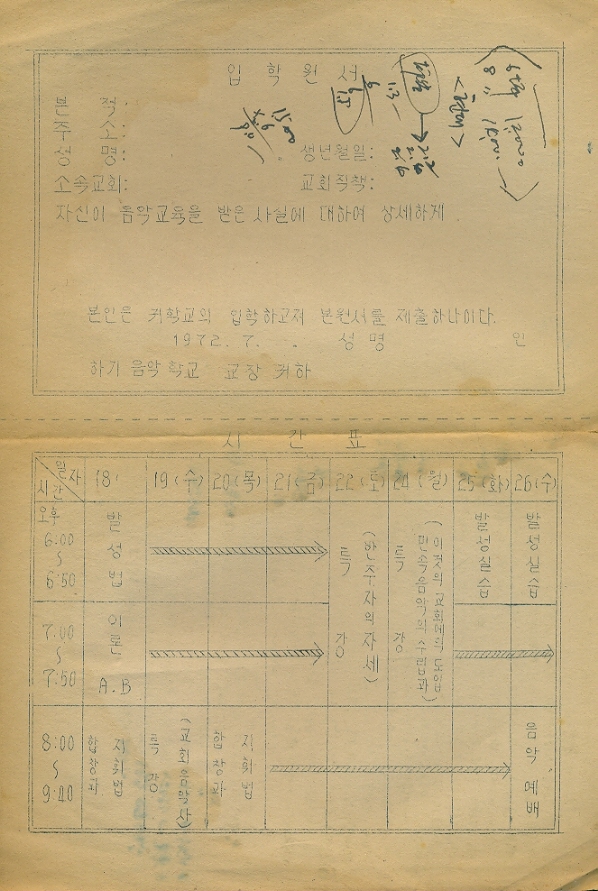 입 학 원 서
본 적:
주 소:
성 명: 성년월일:
소속교회: 교회직책:
자신이 음악교육을 받은 사실에 대하여 상세하게.
본인은 귀학교의 입학하고저 본원서를 제출하나이다.
1972. 7. . 성 명 인
하기 음악학교 교장 귀하
시 간 표
일자 시간 18 19(수) 20(목) 21(금) 22(토) 24(월) 25(화) 26(수)
오후 6:00 ~ 6:50 발성법 특 강 (반주자의 자세) 특 강 (민속음악의 수립과 이것의 교회에의 도입) 발성실습 발성실습
7.00 ~ 7:50 이론 A.B
8:00 ~ 9:40 합창과 지휘법 특 강 (교회음악사) 합창과 지휘법 음악 예배